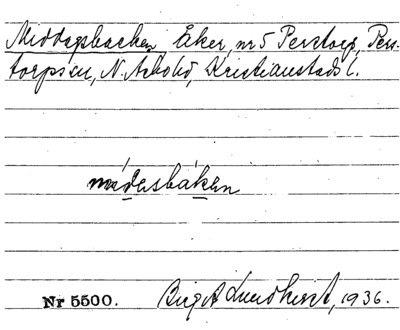 Middagsbacken, Åker, nr 5 Perstorp, Pers-
torps sn, N. Åsbo hd, Kristianstads l.
midasbaken
Nr 5500. Birgit Lundkvist, 1936.